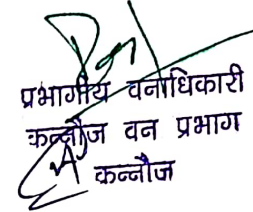 प्रभागीय वनाधिकारी
कन्नौज वन प्रभाग
कन्नौज